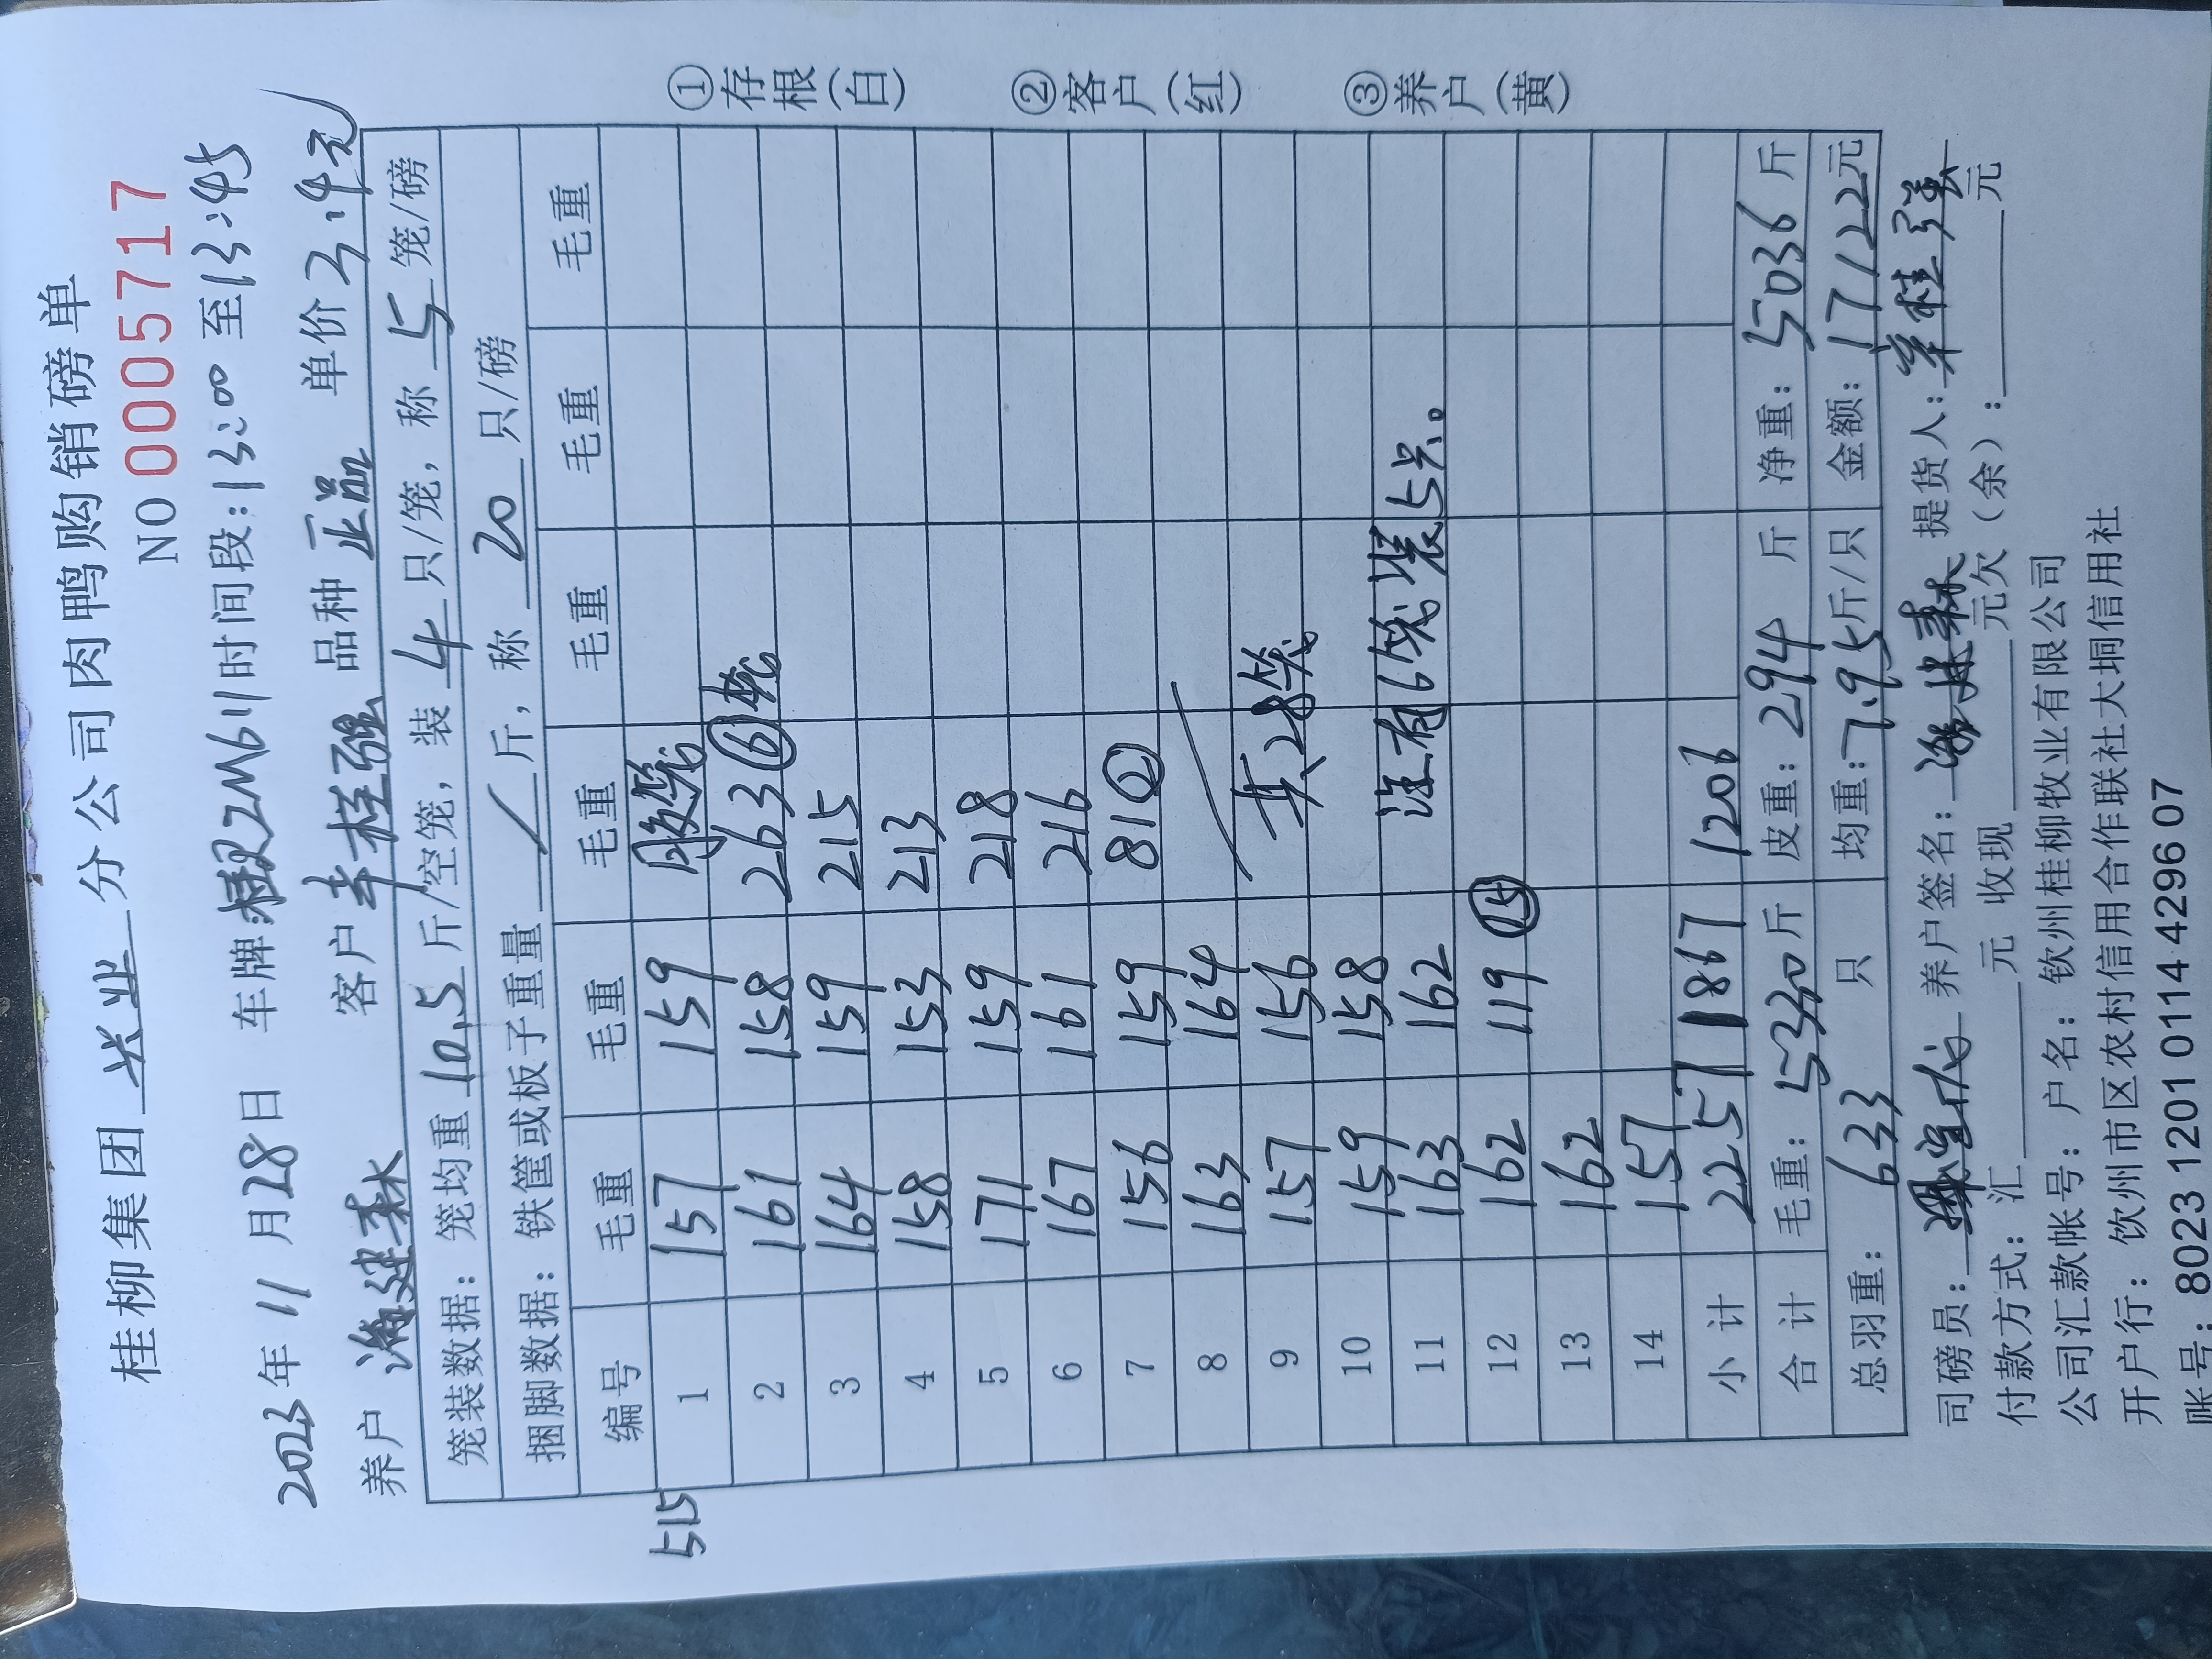 桂柳集团 兴业 分公司肉鸭购销磅单
NO 0005717
2023年11月28日 车牌:桂R2M611 时间段:13:00至13:45
养户 建森 客户 桂强 品种 正品 单价 3.4元
笼装数据：笼均重 10.5 斤/空笼，装 4 只/笼，称 5 笼/磅
捆脚数据：铁筐或板子重量 / 斤，称 20 只/磅
编号 毛重 毛重 毛重 毛重 毛重 毛重
515 1 157 159 胶笼
2 161 158 263⑥
3 164 159 215
4 158 153 213
5 171 159 218
6 167 161 216
7 156 159 81②
8 163 164
9 157 156 共28笼
10 159 158
11 163 162 注有6笼装5只。
12 162 119⑮
13 162
14 157
小计 2257 1867 1206
合计 毛重：5330斤 皮重：294 斤 净重：5036斤
总羽重： 633 只 均重：7.95斤/只 金额：17122元
司磅员： 养户签名： 建森 提货人： 桂强
付款方式：汇 元 收现 元欠（余）： 元
公司汇款帐号：户名：钦州桂柳牧业有限公司
开户行：钦州市区农村信用合作联社大垌信用社
账号：8023 1201 0114 4296 07
①存根(白)
②客户(红)
③养户(黄)